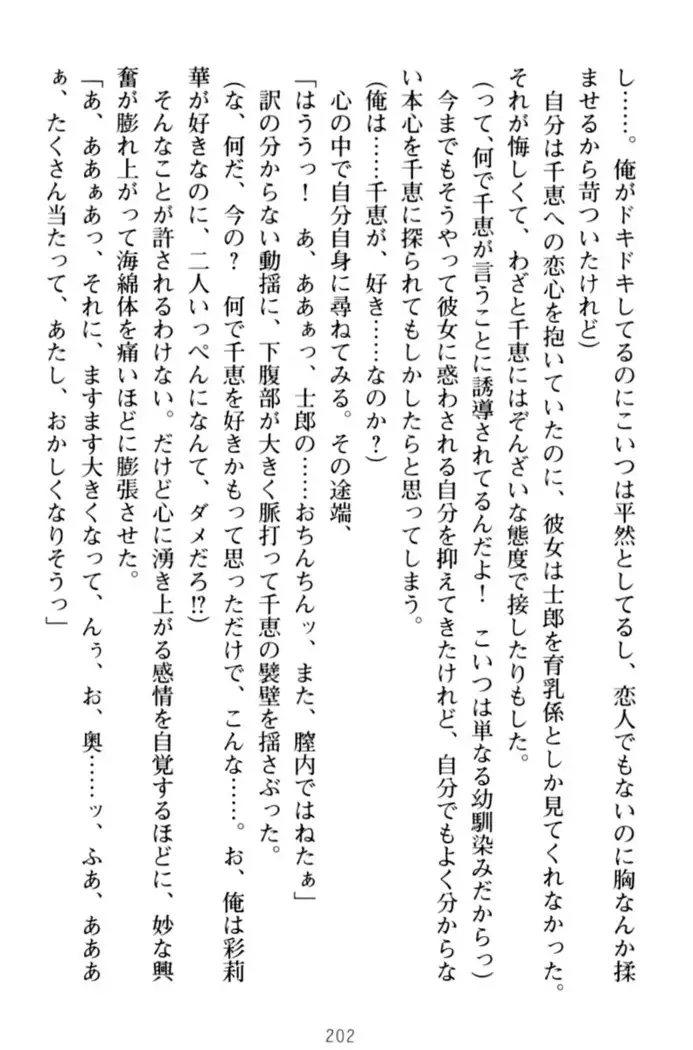 し……。俺がドキドキしてるのにこいつは平然としてるし、恋人でもないのに胸なんか揉
ませるから苛ついたけれど)
自分は千恵への恋心を抱いていたのに、彼女は士郎を育乳係としか見てくれなかった。
それが悔しくて、わざと千恵にはぞんざいな態度で接したりもした。
(って、何で千恵が言うことに誘導されてるんだよ！　こいつは単なる幼馴染みだからっ)
今までもそうやって彼女に惑わされる自分を抑えてきたけれど、自分でもよく分からな
い本心を千恵に探られてもしかしたらと思ってしまう。
(俺は……千恵が、好き……なのか？)
心の中で自分自身に尋ねてみる。その途端、
「はううっ！　あ、ああぁっ、士郎の……おちんちんッ、また、膣内ではねたぁ」
訳の分からない動揺に、下腹部が大きく脈打って千恵の襞壁を揺さぶった。
(な、何だ、今の？　何で千恵を好きかもって思っただけで、こんな……。お、俺は彩莉
華が好きなのに、二人いっぺんになんて、ダメだろ!?)
そんなことが許されるわけない。だけど心に湧き上がる感情を自覚するほどに、妙な興
奮が膨れ上がって海綿体を痛いほどに膨張させた。
「あ、ああぁあっ、それに、ますます大きくなって、んぅ、お、奥……ッ、ふあ、あああ
ぁ、たくさん当たって、あたし、おかしくなりそうっ」
202